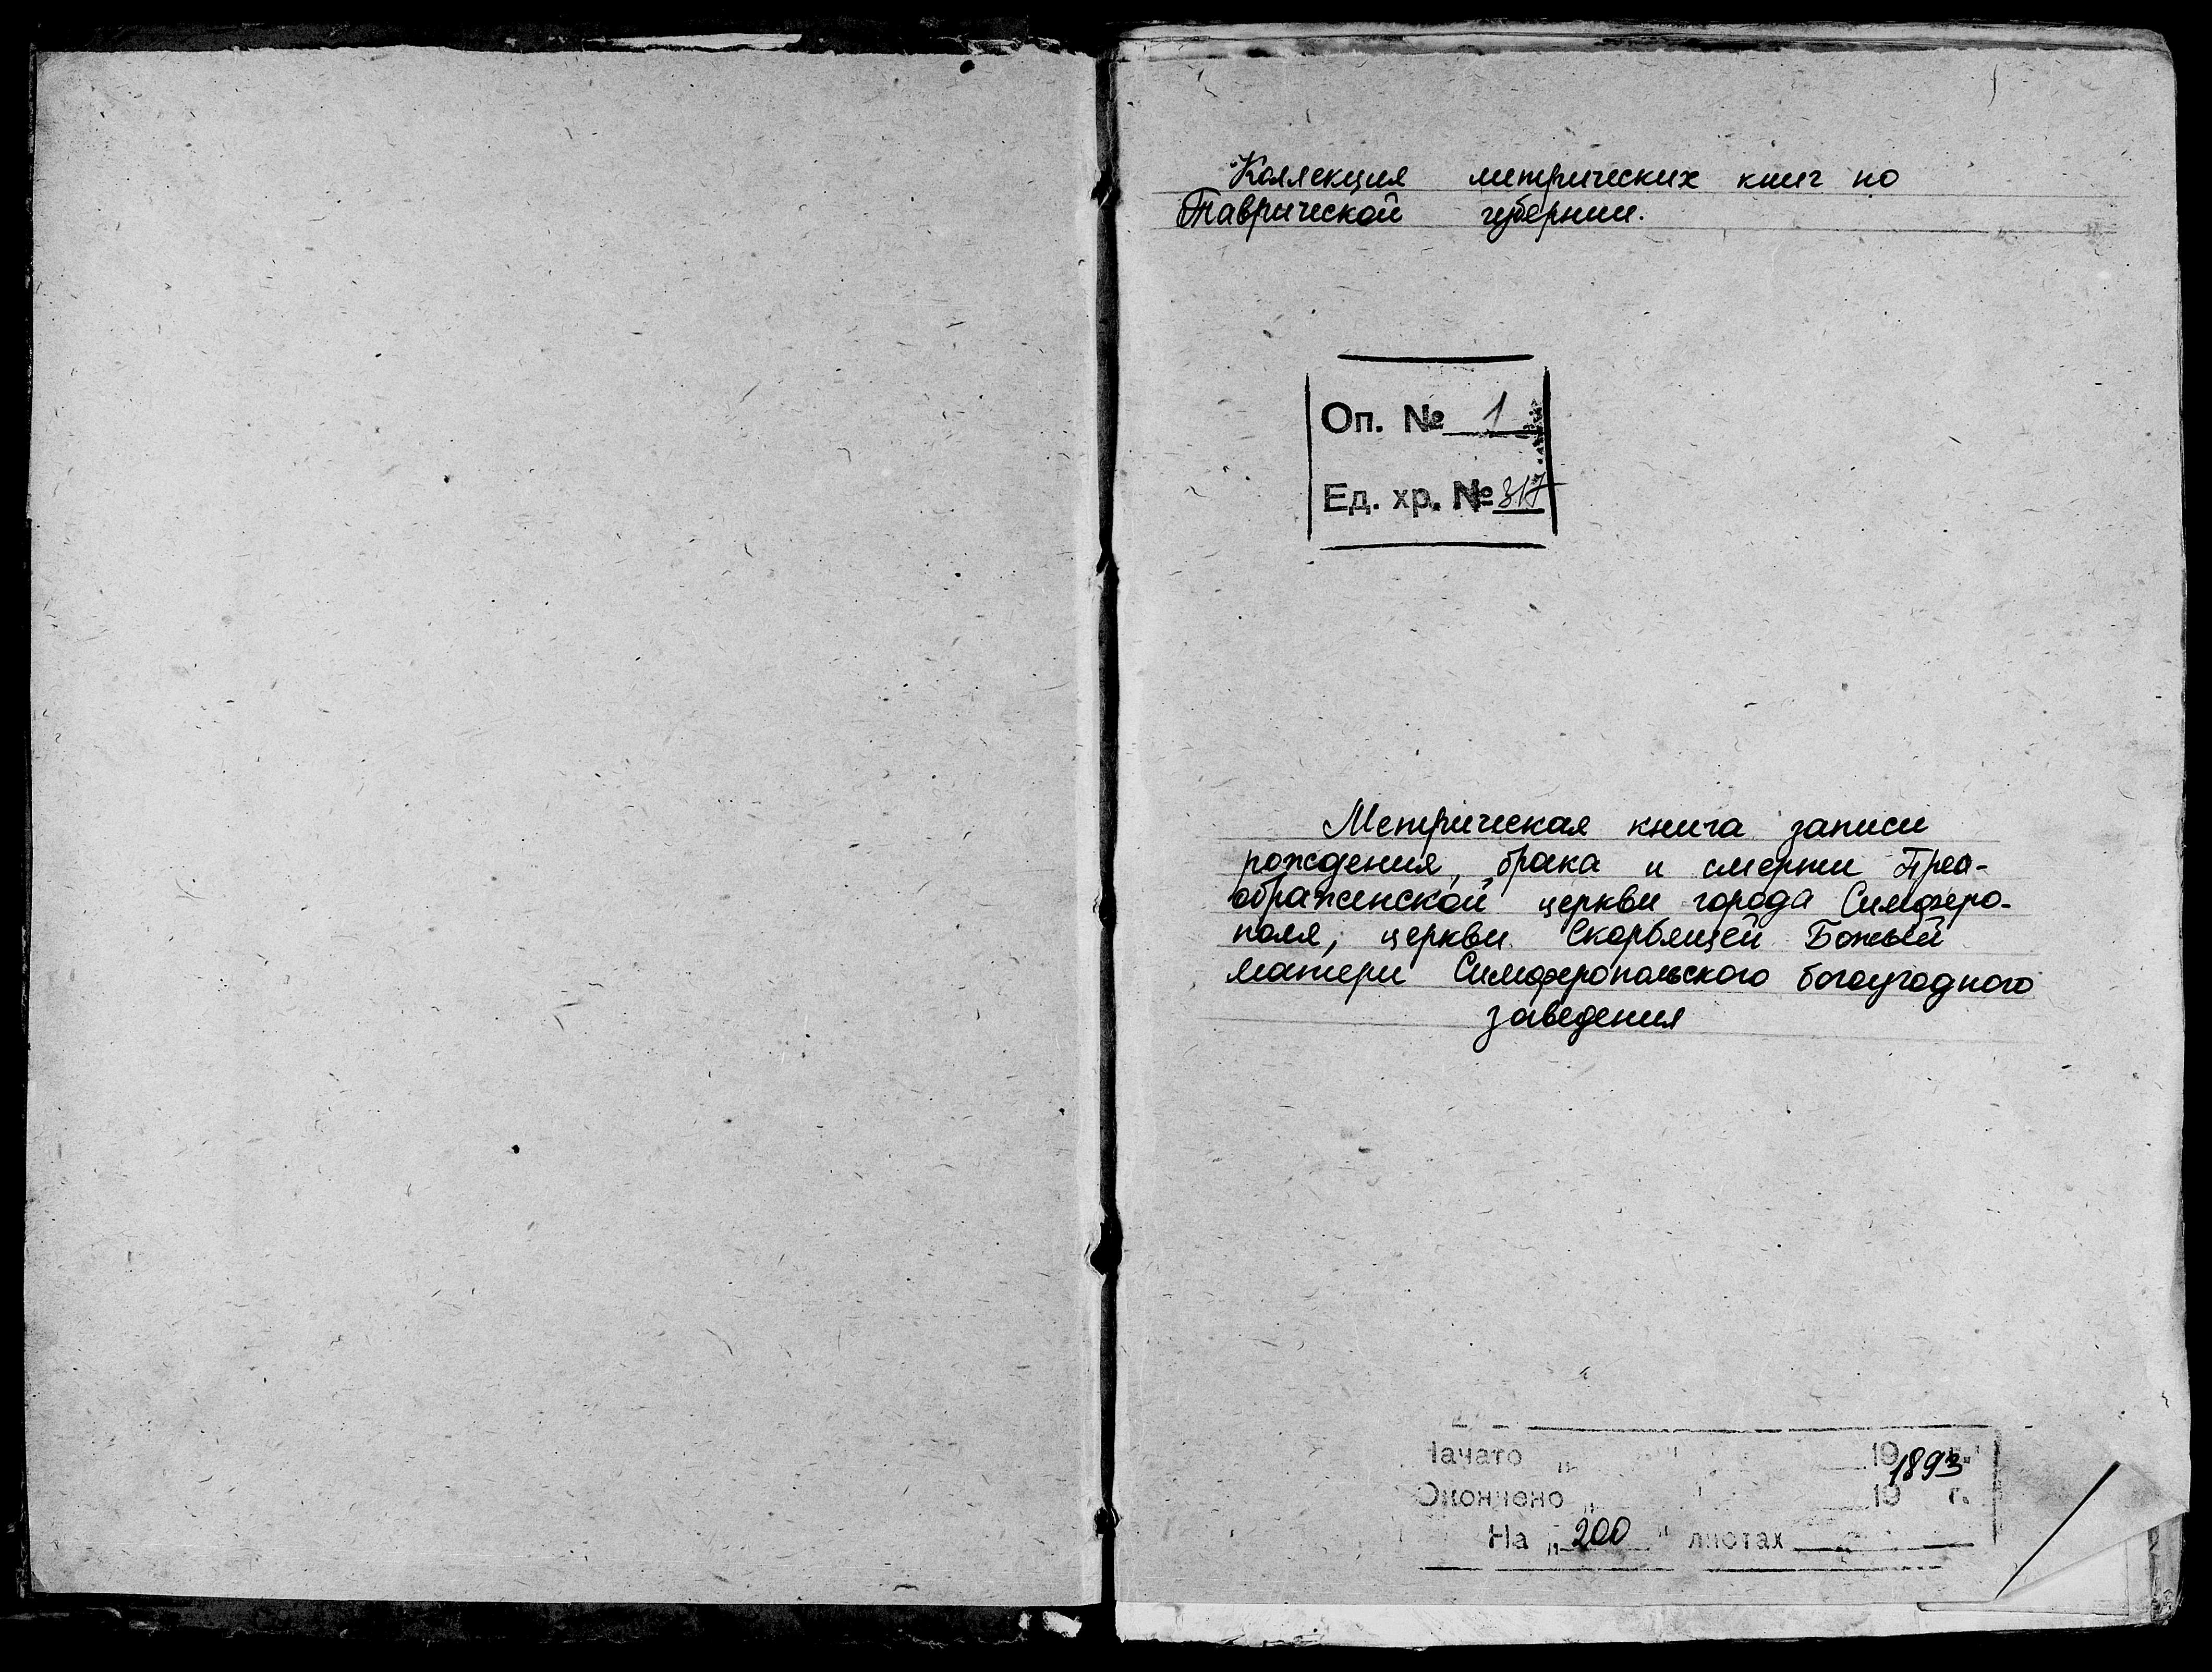 Коллекция метрических книг по
Таврической губернии.
Оп. № 1
Ед. хр. № 317
Метрическая книга записи
рождения, брака и смерти Прео-
ображенской церкви города Симферо-
поля, церкви Скорбящей Божьей
матери Симферопольского богоугодного
заведения
Начато " " 19 г.
1893
Окончено " " 19 г.
На " 200 " листах